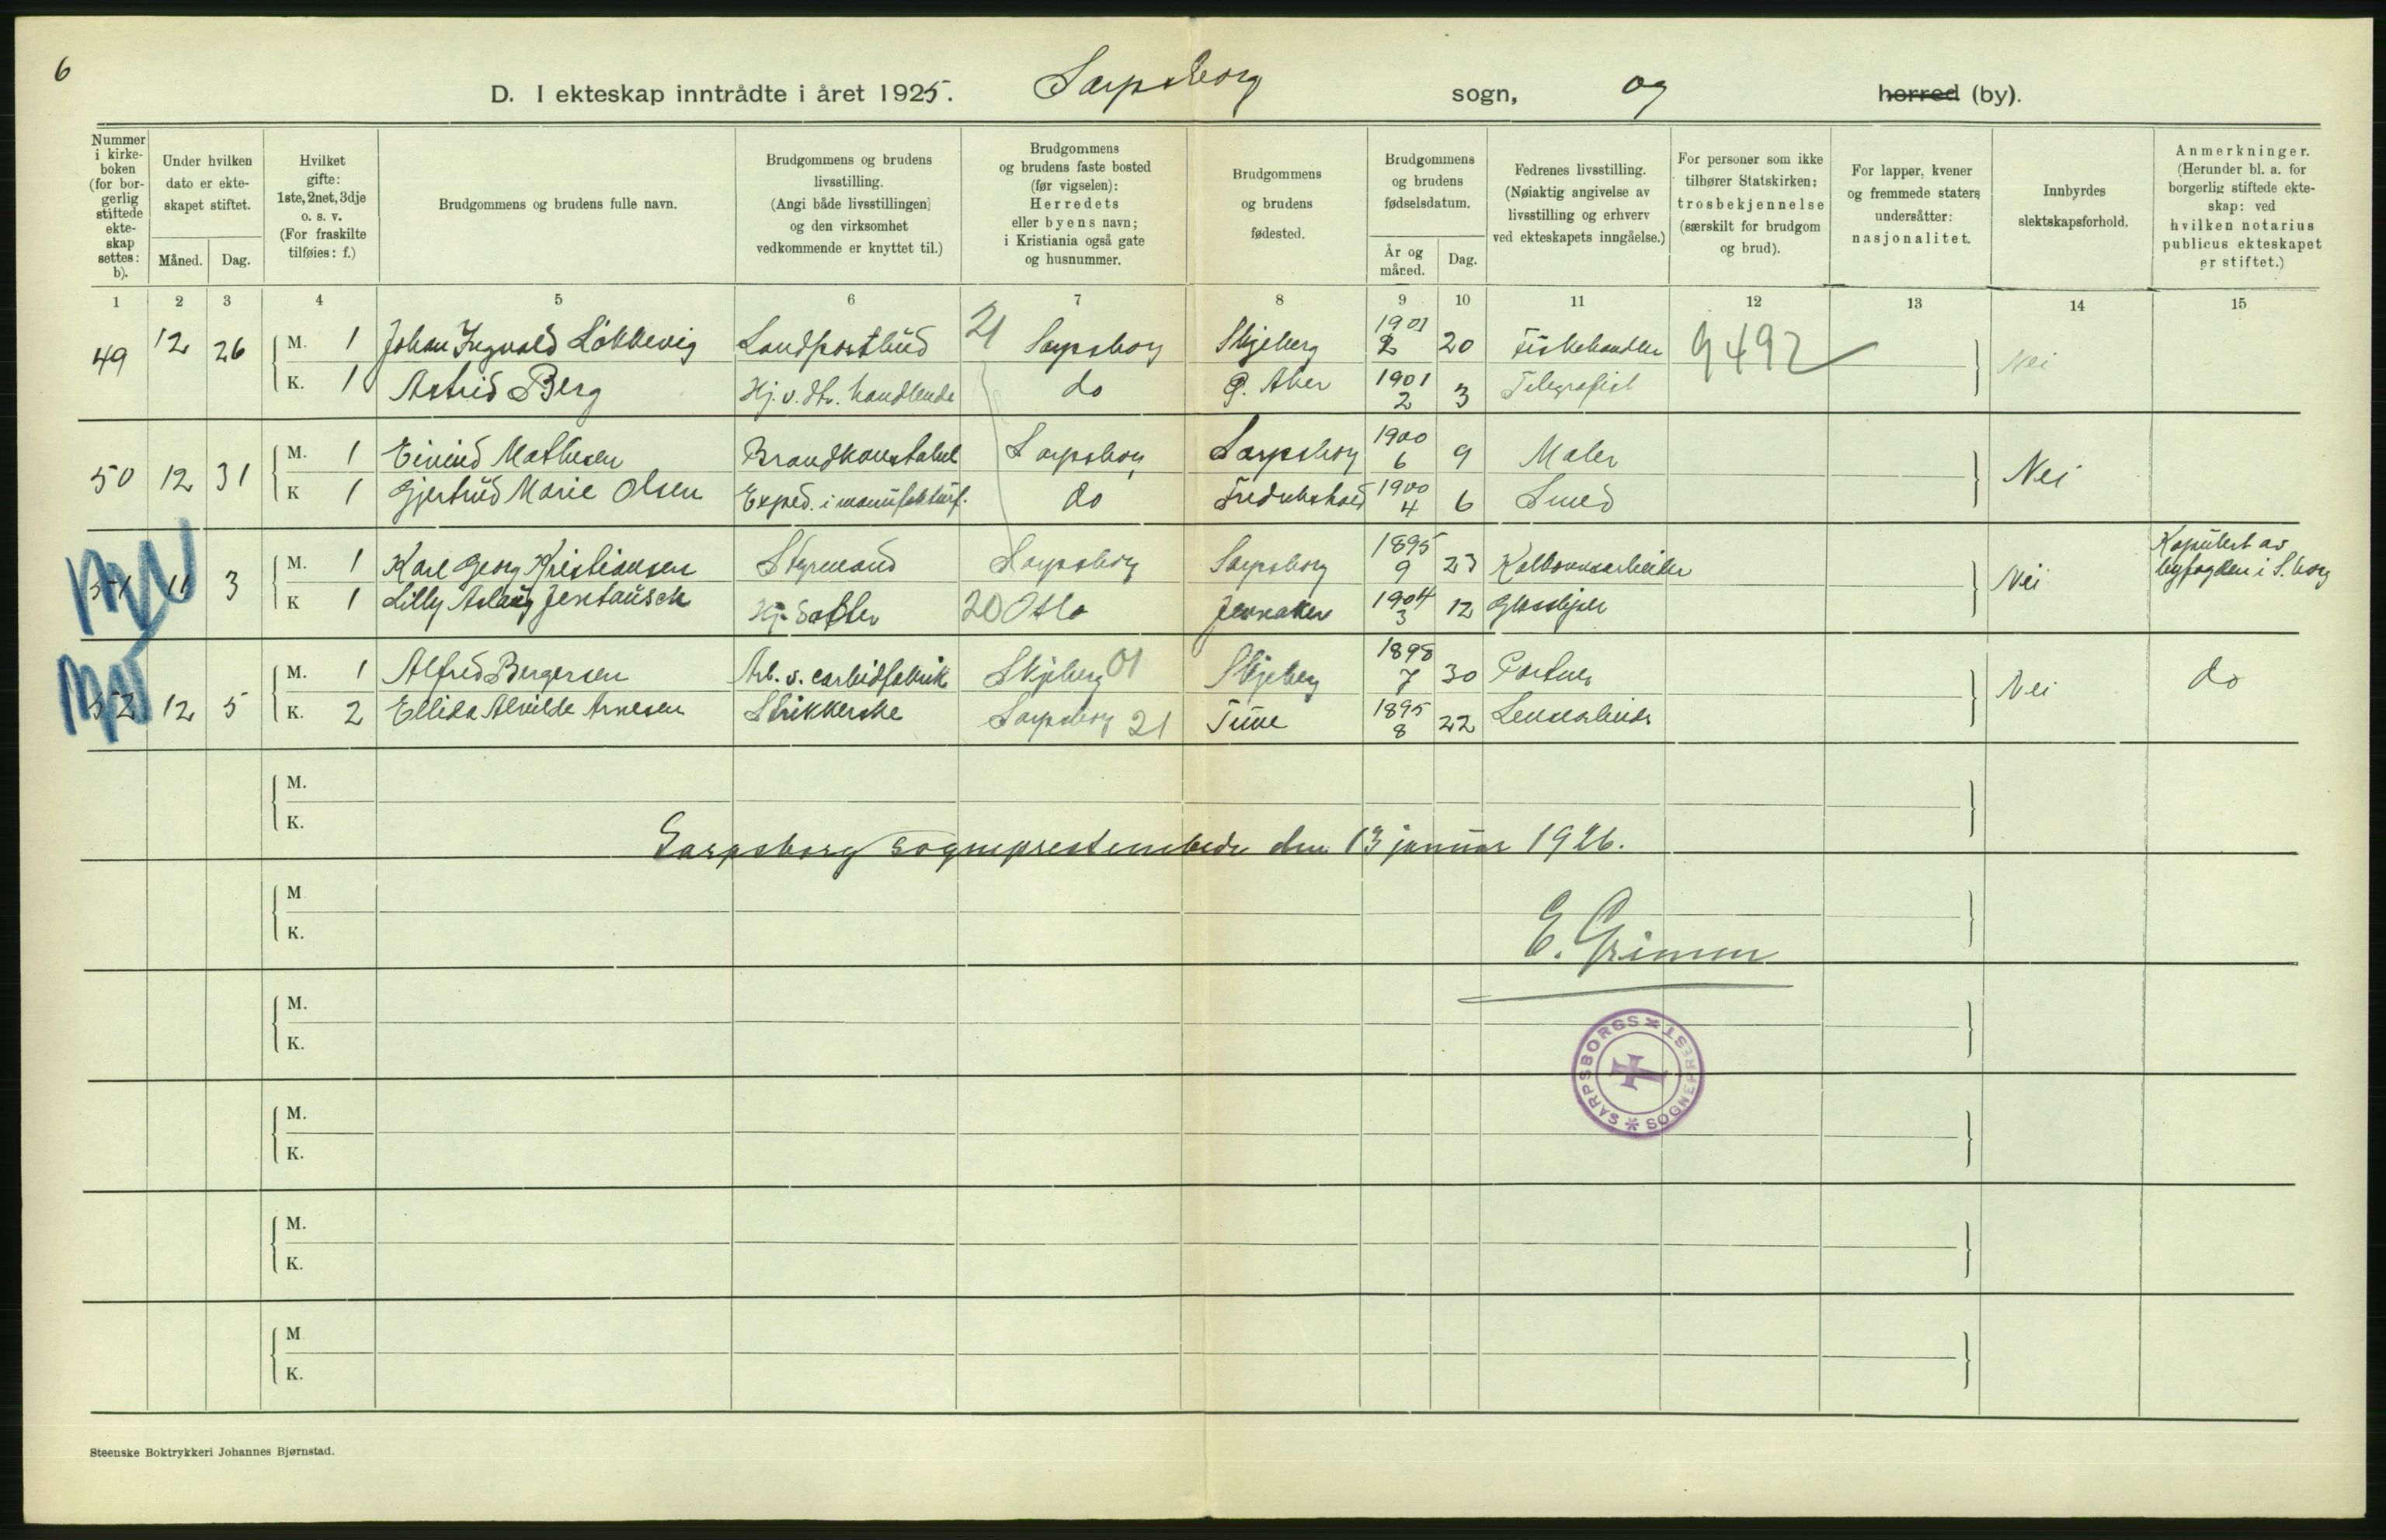 6
D. I ekteskap inntrådte i året 1925. Sarpsborg sogn, og herred (by).
Nummer i kirke-boken (for bor-gerlig stiftede ekte-skap settes: b).
Under hvilken dato er ekte-skapet stiftet.
Måned. Dag.
Hvilket gifte: 1ste, 2net, 3dje o. s. v. (For fraskilte tilføies: f.)
Brudgommens og brudens fulle navn.
Brudgommens og brudens livsstilling. (Angi både livsstillingen og den virksomhet vedkommende er knyttet til.)
Brudgommens og brudens faste bosted (før vigselen): Herredets eller byens navn; i Kristiania også gate og husnummer.
Brudgommens og brudens fødested.
Brudgommens og brudens fødselsdatum.
År og måned. Dag.
Fedrenes livsstilling. (Nøiaktig angivelse av livsstilling og erhverv ved ekteskapets inngåelse.)
For personer som ikke tilhører Statskirken: trosbekjennelse (særskilt for brudgom og brud).
For lapper, kvener og fremmede staters undersåtter: nasjonalitet.
Innbyrdes slektskapsforhold.
Anmerkninger. (Herunder bl. a. for borgerlig stiftede ekte-skap: ved hvilken notarius publicus ekteskapet er stiftet.)
1 2 3 4 5 6 7 8 9 10 11 12 13 14 15
49 12 26 M. 1 Johan Ingvald Løkkevig Landpostbud 21 Sarpsborg Skjeberg 1901 2 20 Fiskehandler 9492 Nei
K. 1 Astrid Berg Hj. v. str. handlende do Ø. Aker 1901 2 3 Telegrafist
50 12 31 M. 1 Eivind Mathesen Brandkonstabel Sarpsborg Sarpsborg 1900 6 9 Maler Nei
K 1 Gjertrud Marie Olsen Exped. i manufakturf. do Fredrikshald 1900 4 6 Smed
51 11 3 M. 1 Karl Georg Kristiansen Styrmand Sarpsborg Sarpsborg 1895 9 23 Nei Kopulert av byfogden i S.borg
K 1 Lilly Aslaug Hj. datter 20 Oslo Jevnaker 1904 3 12
52 12 5 M. 1 Alfred Bergersen Arb. v. carbidfabrik Skjeberg 01 Skjeberg 1898 7 30 Nei do
K. 2 Ellida Alvilde Arnesen Strikkerske Sarpsborg 21 Tune 1895 8 22
M.
K.
Sarpsborg sogneprestembede den 13 januar 1926.
M
K.
E. Grimm
M.
K.
SARPSBORGS * SOGNEPREST *
M.
K.
M.
K.
M
K.
Steenske Boktrykkeri Johannes Bjørnstad.